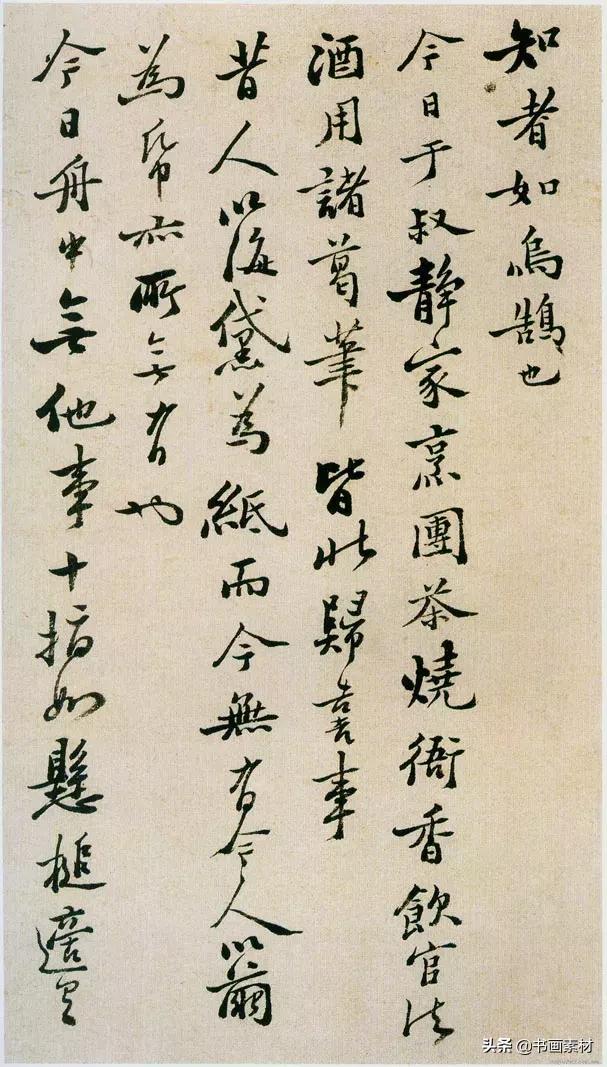 知者如烏鵲也
今日于叔静家烹團茶燒衙香飲官法
酒用諸葛筆皆北歸喜事
昔人以海黛為紙而今無有今人以繭
為帋亦所無有也
今日舟中無他事十指如懸槌適
头条 @书画素材